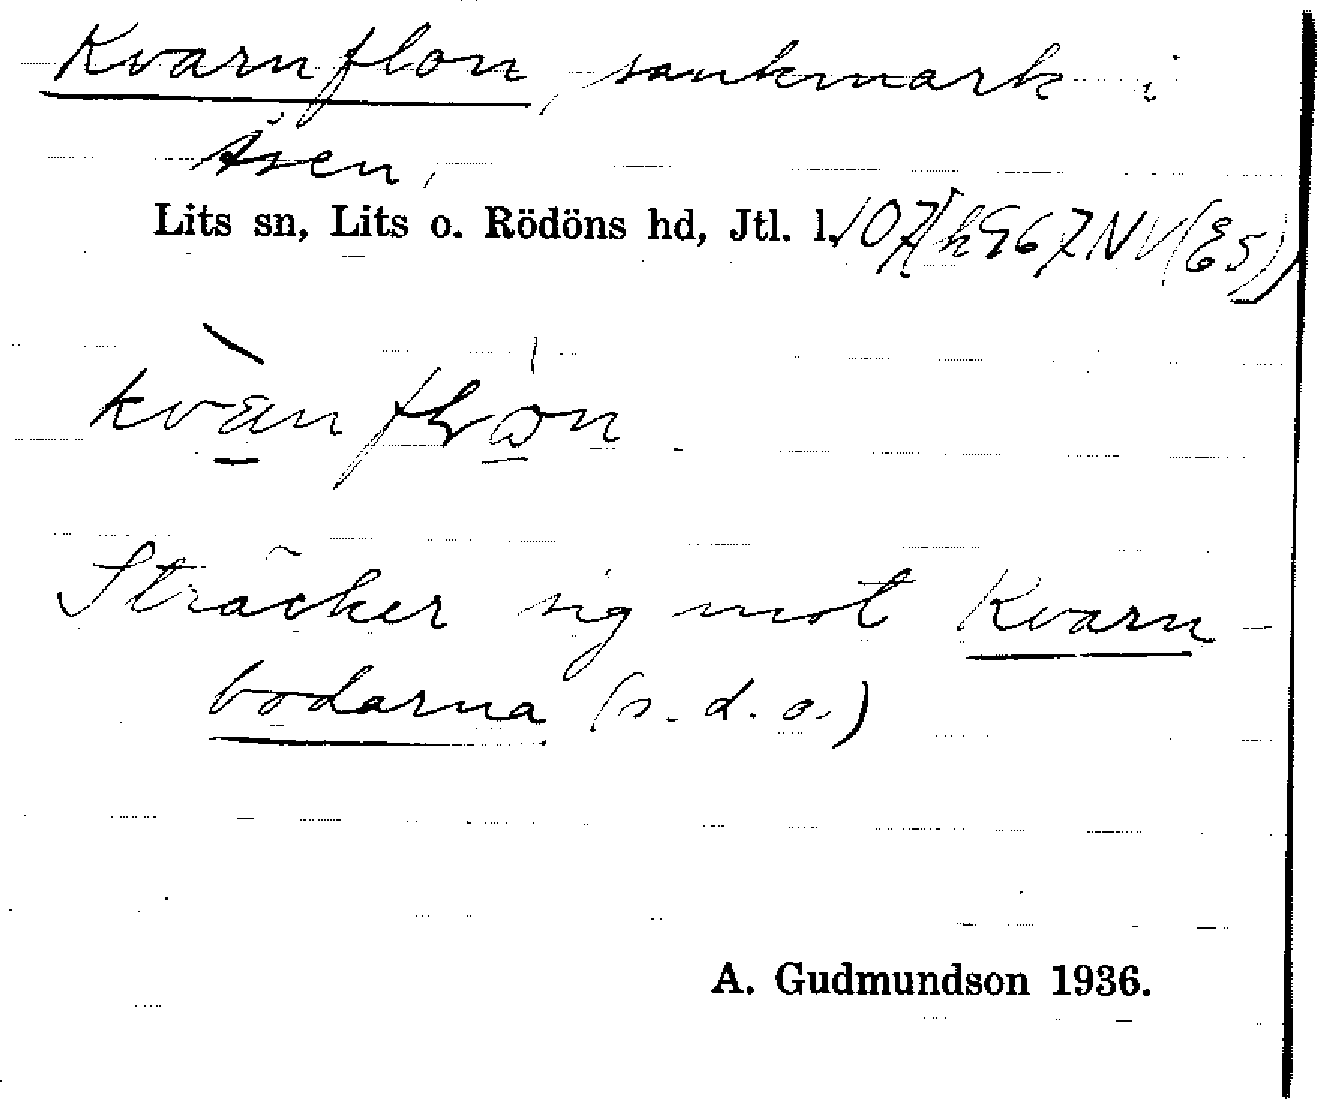 Kvarnflon, sankmark i
Åsen,
Lits sn, Lits o. Rödöns hd, Jtl. l.
Sträcker sig mot Kvarn-
bodarna (s. d. o.)
A. Gudmundson 1936.